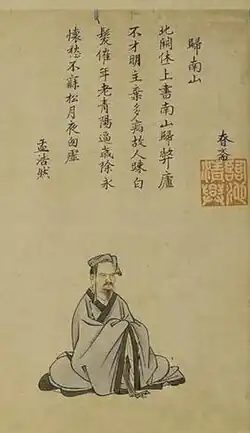 歸南山
春斎
北闕休上書南山歸弊廬
不才明主棄多病故人疎白
髮催年老青陽逼歳除永
懷愁不寐松月夜囱虚
孟浩然